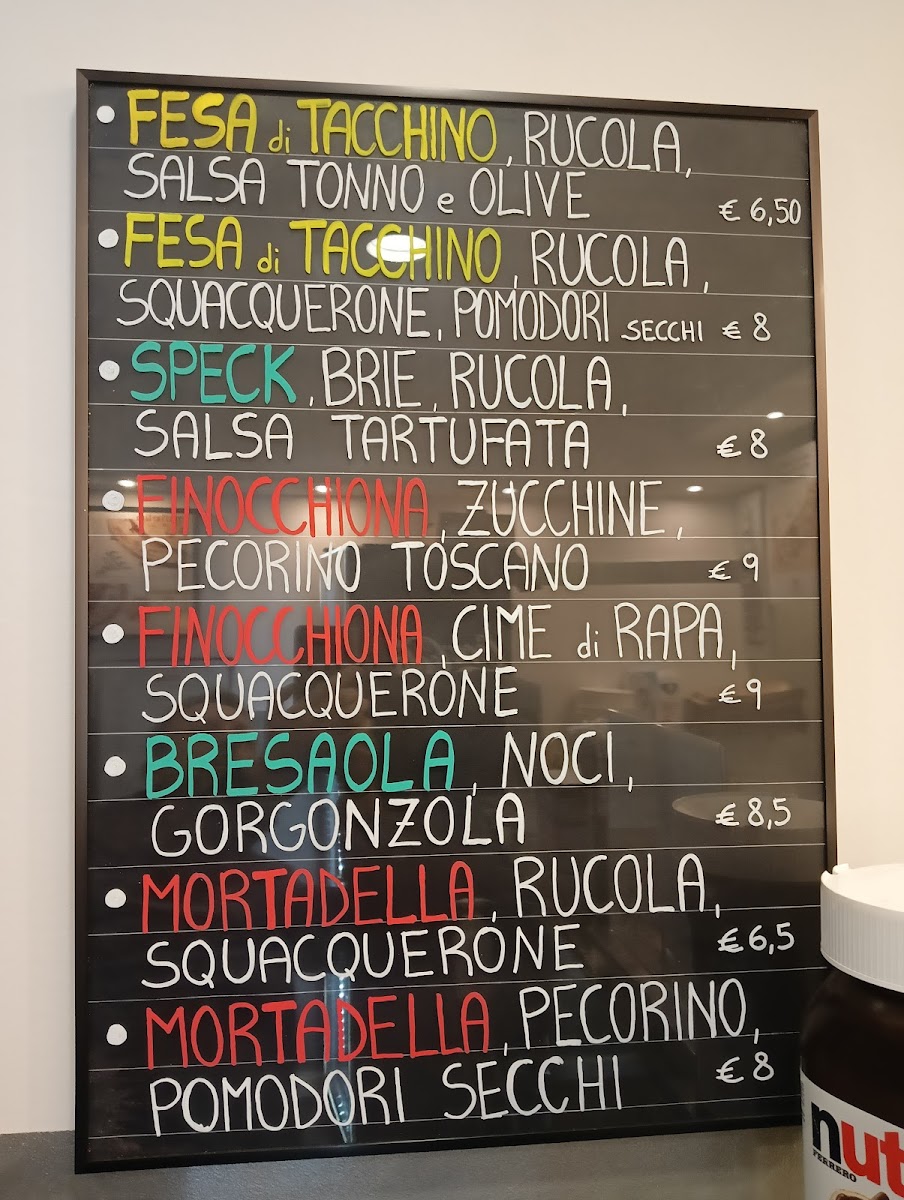 FESA di TACCHINO, RUCOLA,
SALSA TONNO e OLIVE € 6,50
FESA di TACCHINO, RUCOLA,
SQUACQUERONE, POMODORI SECCHI € 8
SPECK, BRIE, RUCOLA,
SALSA TARTUFATA € 8
FINOCCHIONA, ZUCCHINE,
PECORINO TOSCANO € 9
FINOCCHIONA, CIME di RAPA,
SQUACQUERONE € 9
BRESAOLA, NOCI,
GORGONZOLA € 8,5
MORTADELLA, RUCOLA,
SQUACQUERONE € 6,5
MORTADELLA, PECORINO,
POMODORI SECCHI € 8
nut
FERRERO